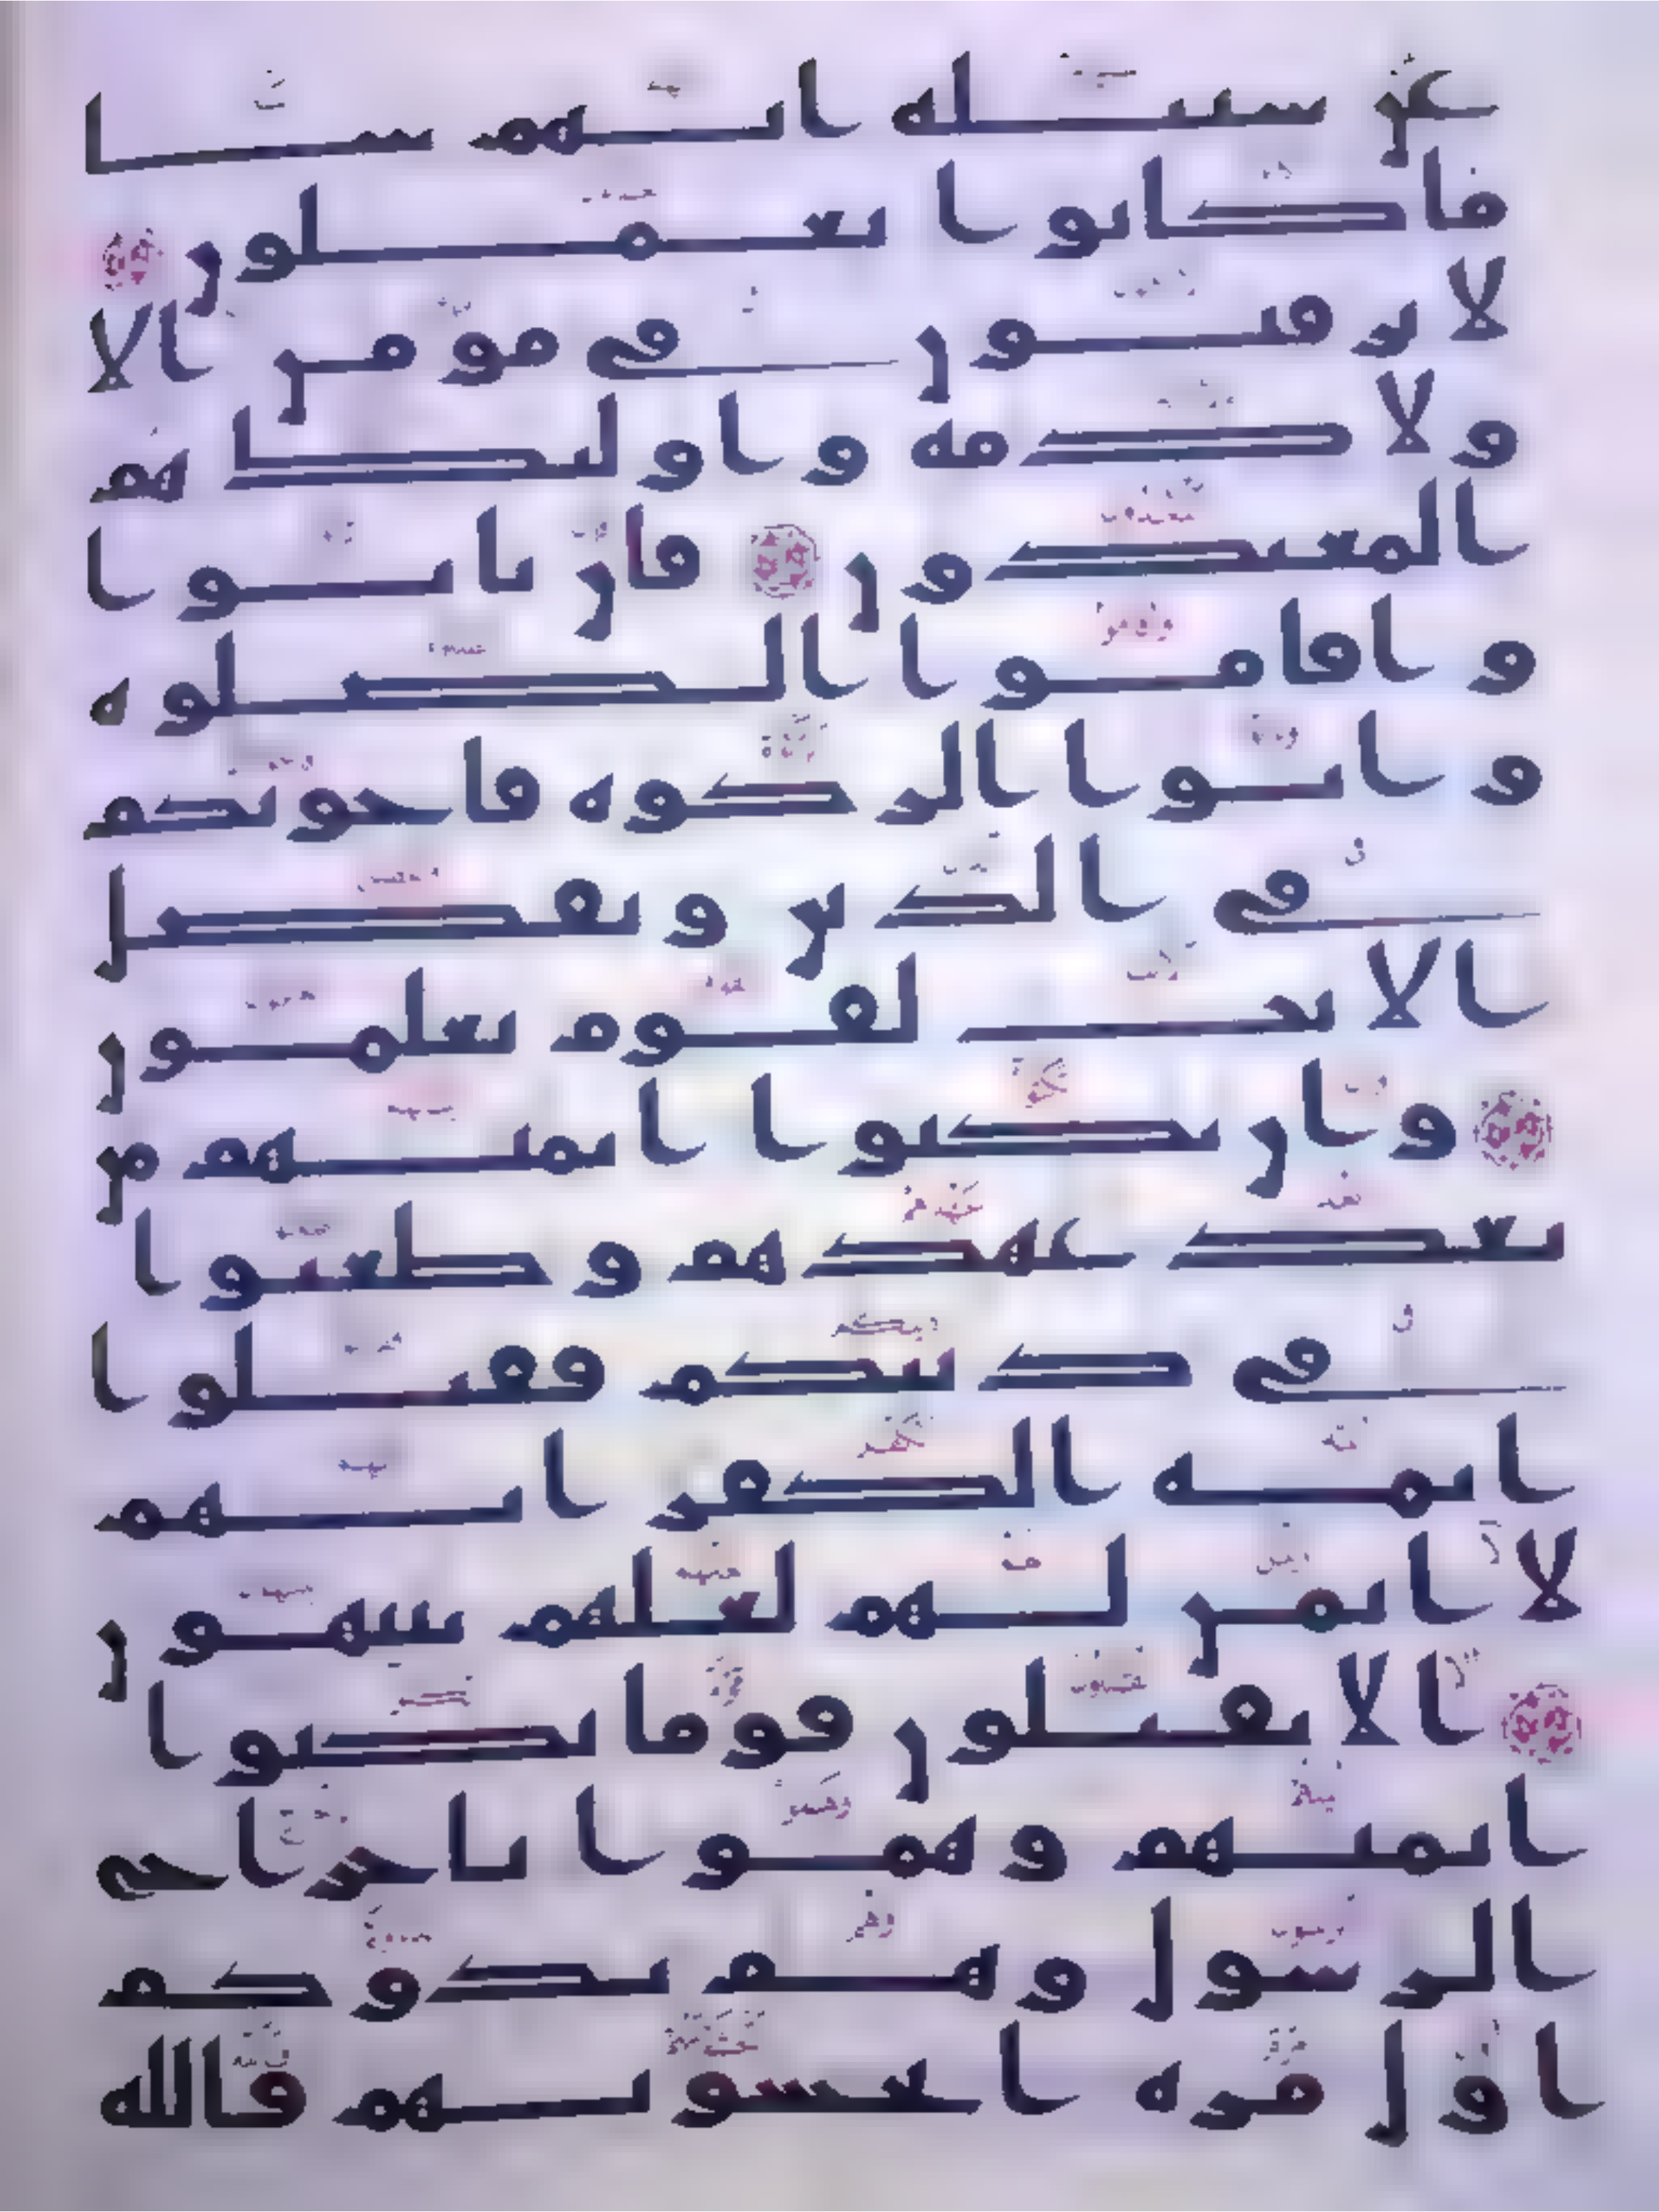 عن سبيله انهم سا
ما كانوا يعملون
لا يرقبون في مومن الا
ولا ذمه واوليك هم
المعتدون فان تابوا
واقاموا الصلوه
واتوا الزكوه فاخونكم
في الدين ونفصل
الايت لقوم يعلمون
وان نكثوا ايمنهم من
بعد عهدهم وطعنوا
في دينكم فقتلوا
ايمه الكفر انهم
لا ايمن لهم لعلهم ينتهون
الا تقتلون قوما نكثوا
ايمنهم وهموا باخراج
الرسول وهم بدوكم
اول مره اتخشونهم فالله